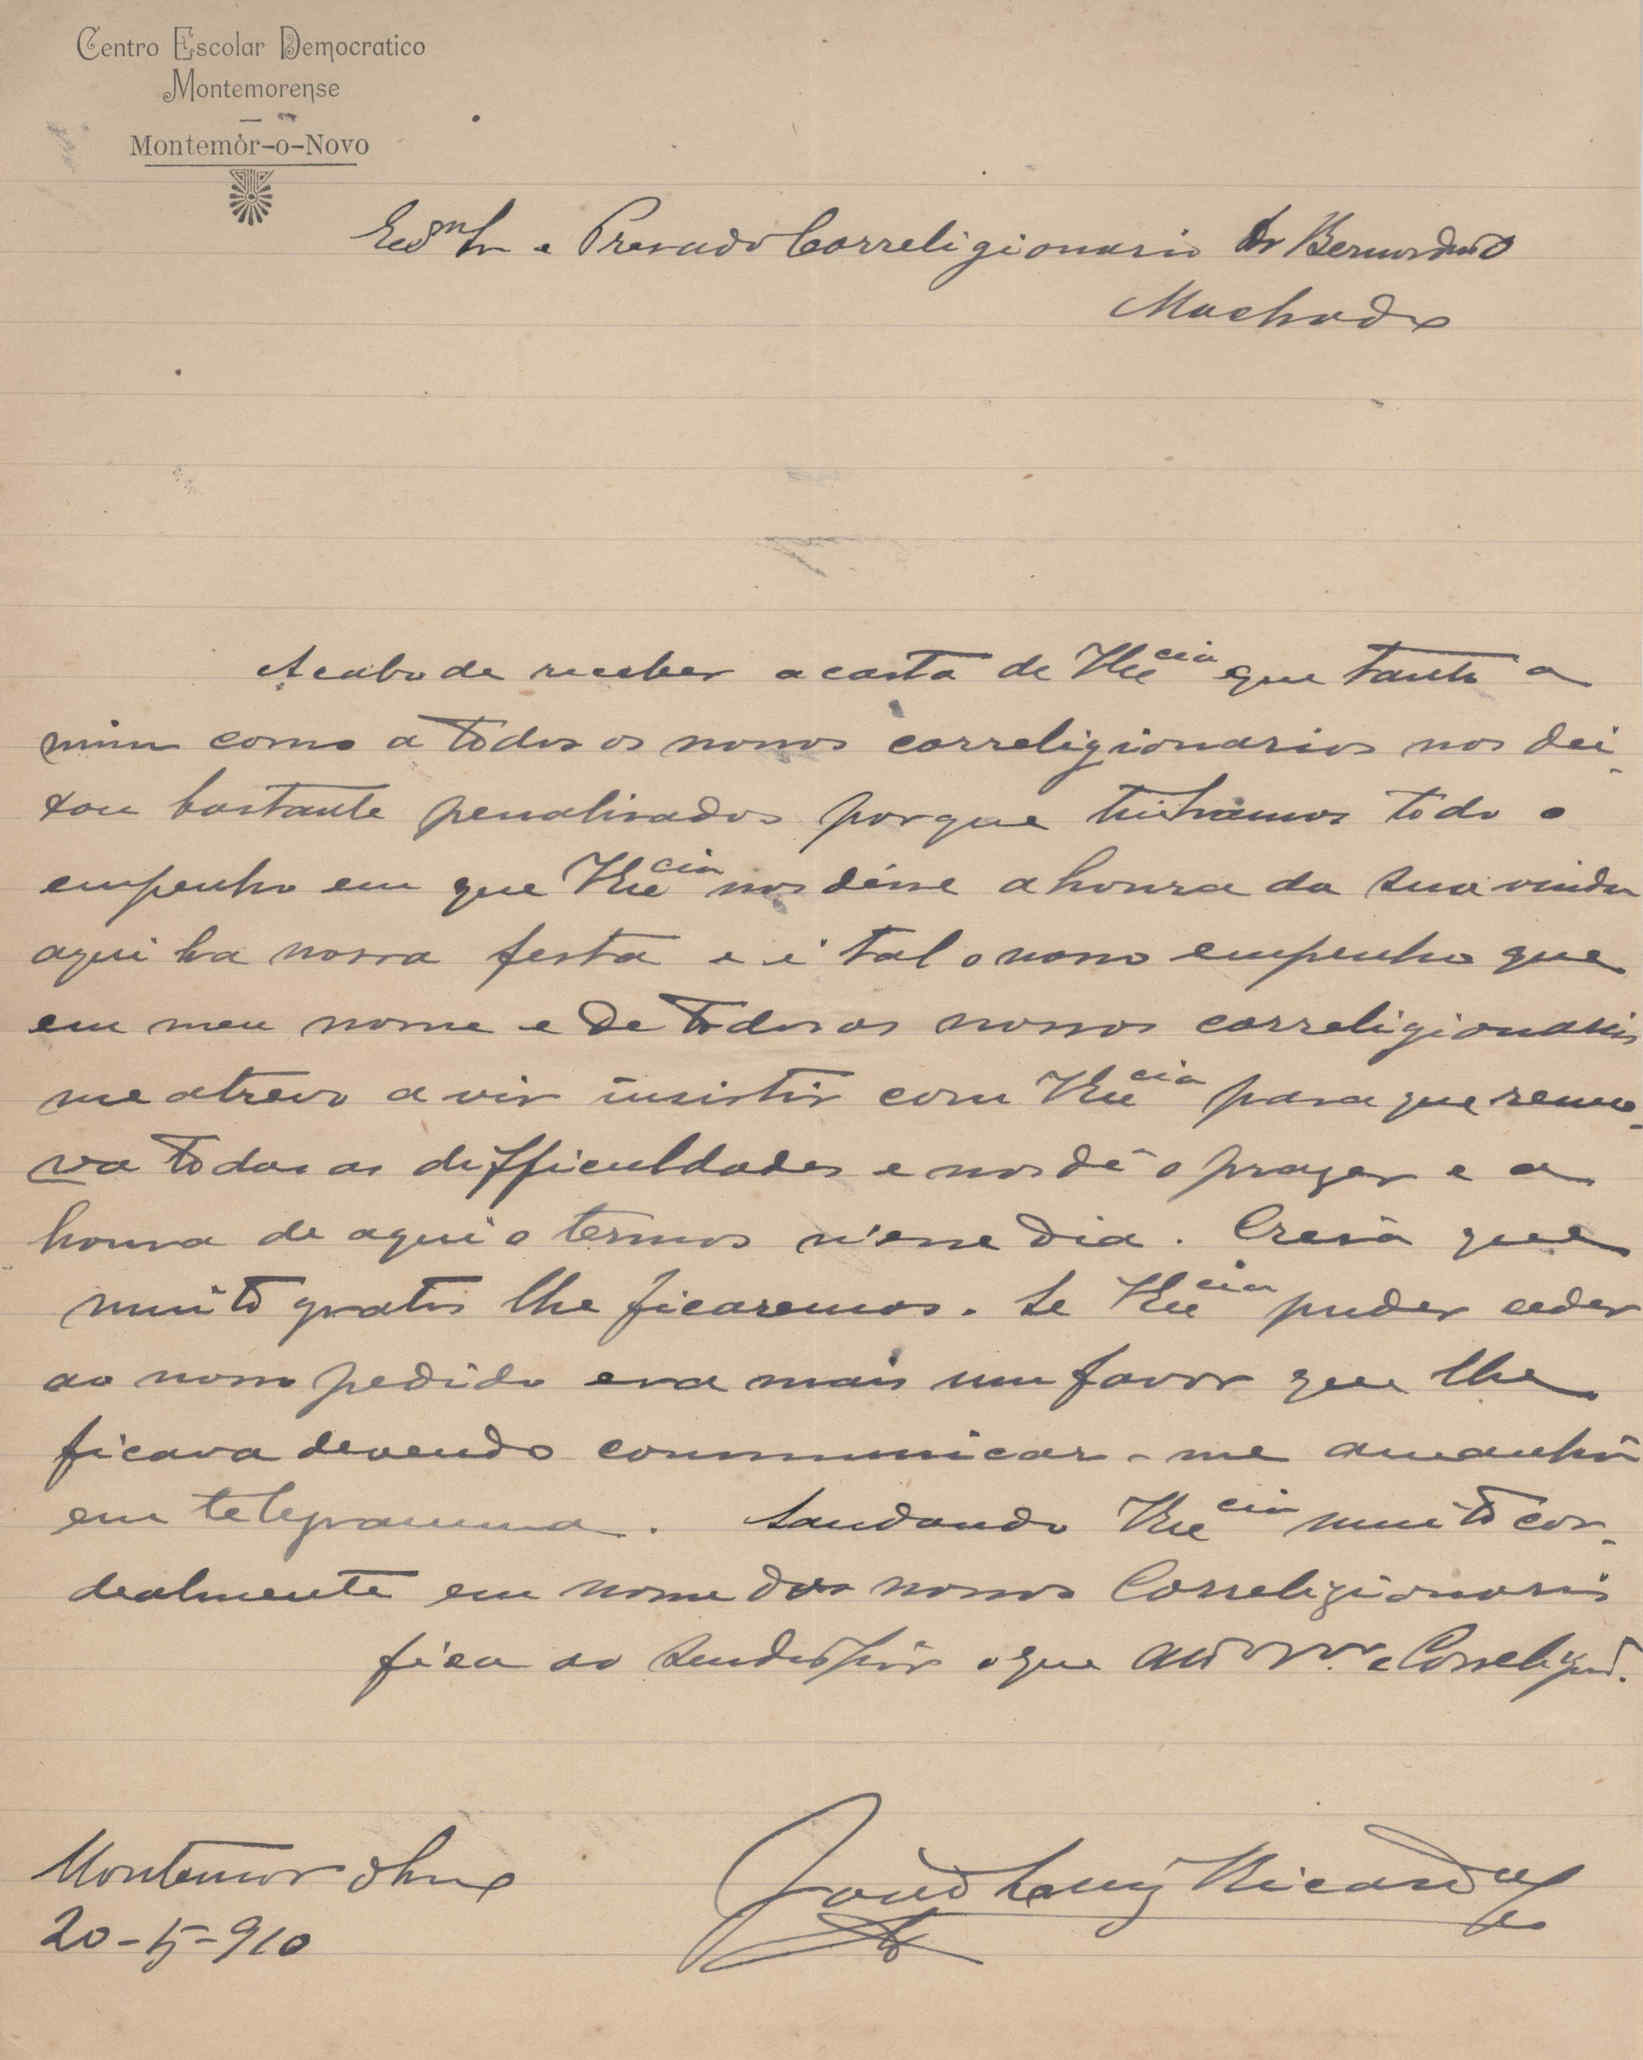 Centro Escolar Democratico
Montemorense
Montemôr-o-Novo
Exmº Sr e Presado Correligionario Dr Bernardino
Machado
Acabo de receber a carta de V Excia que tanto a
mim como a todos os nossos correligionarios nos dei-
xou bastante penalisados porque tinhamos todo o
empenho em que V Excia nos désse a honra da sua vinda
aqui ha nossa festa e é tal o nosso empenho que
em meu nome e de todos os nossos correligionarios
me atrevo a vir insistir com V Excia para que remo-
va todas as difficuldades e nos dê o prazer e a
honra de aqui o termos n'esse dia. Creia que
muito gratos lhe ficaremos. Se V Excia puder ceder
ao nosso pedido era mais um favor que lhe
ficava devendo communicar-me amanhã
em telegramma. Saudando V Excia muito cor-
dealmente em nome dos nossos Correligionarios
fica ao seu dispôr o que é e Correligº.
Montemor o Novo
20-5-910
João Luiz Ricardo